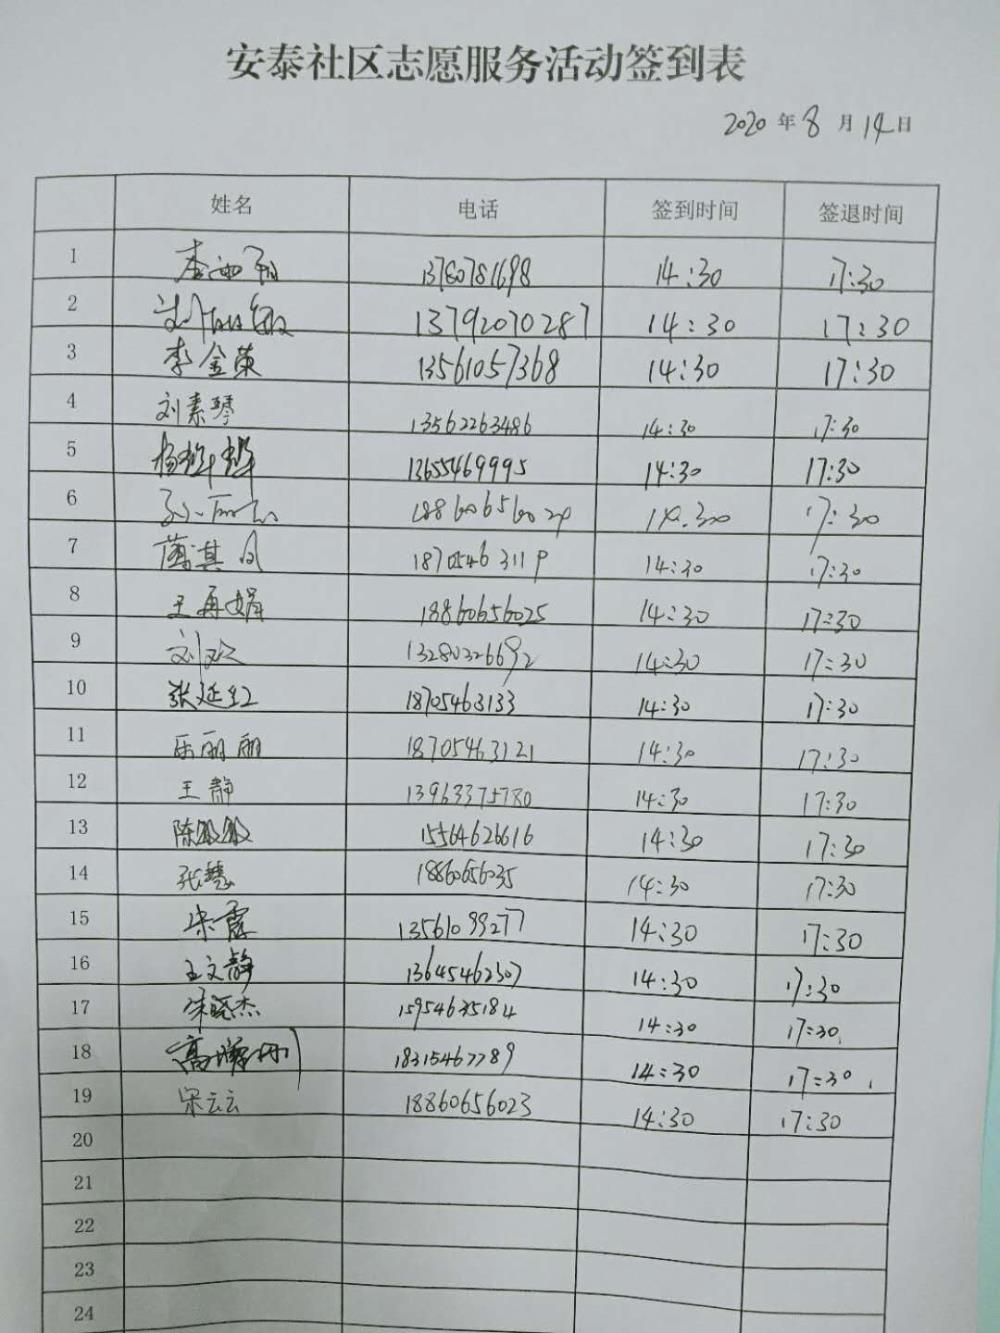 安泰社区志愿服务活动签到表
2020年8月14日
姓名 电话 签到时间 签退时间
1 13780781698 14:30 17:30
2 13792070287 14:30 17:30
3 李金荣 13561057368 14:30 17:30
4 刘素琴 13562263486 14:30 17:30
5 13655469995 14:30 17:30
6 17:30
7 18705463119 14:30 17:30
8 王再娟 18860656025 14:30 17:30
9 刘欢 13280326692 14:30 17:30
10 张延红 18705463133 14:30 17:30
11 乐丽丽 18705463121 14:30 17:30
12 王静 13963375780 14:30 17:30
13 陈敏敏 15564626616 14:30 17:30
14 张慧 18860656035 14:30 17:30
15 宋霞 13561099277 14:30 17:30
16 王文静 13645462307 14:30 17:30
17 宋晓杰 15954635184 14:30 17:30
18 18315467789 14:30 17:30
19 宋云云 18860656023 14:30 17:30
20
21
22
23
24